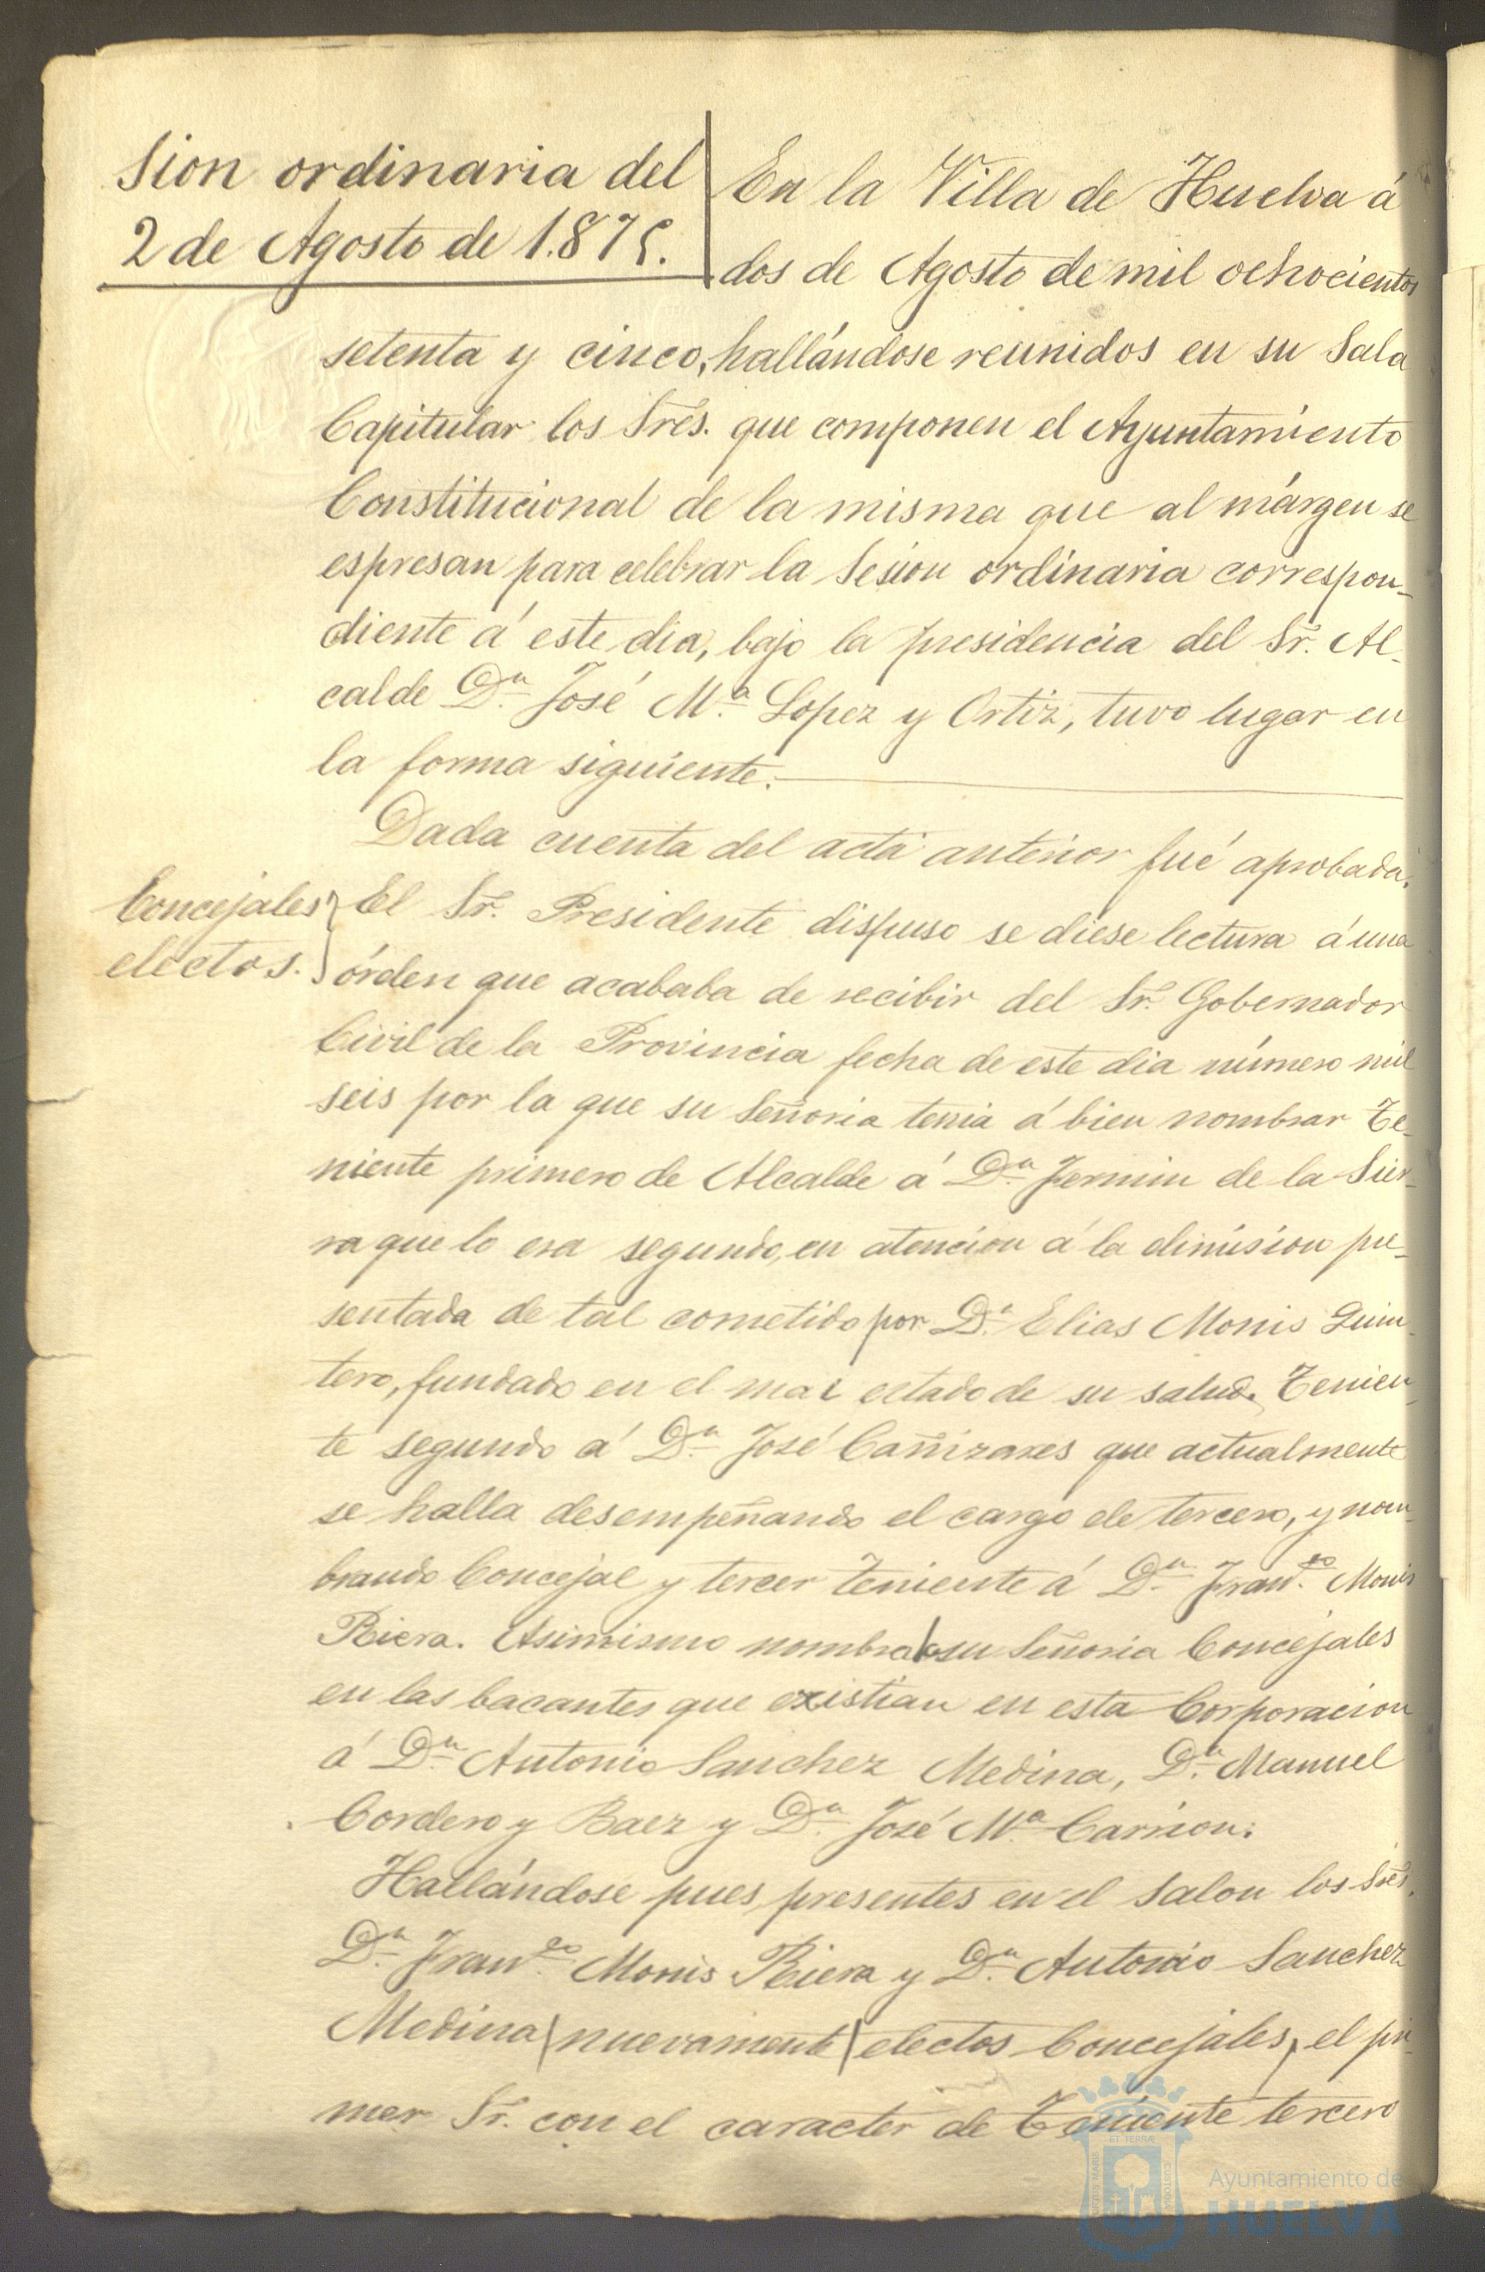 Sion ordinaria del
2 de Agosto de 1.875.
En la Villa de Huelva á
dos de Agosto de mil ochocientos
setenta y cinco, hallándose reunidos en su Sala
Capitular los Sres. que componen el Ayuntamiento
Constitucional de la misma que al márgen se
espresan para celebrar la Sesion ordinaria correspon-
diente á este dia, bajo la presidencia del Sr. Al-
calde Dn. José Mª Lopez y Ortiz, tuvo lugar en
la forma siguiente.
Dada cuenta del acta anterior fué aprobada.
Concejales
electos.
El Sr. Presidente dispuso se diese lectura á una
órden que acababa de recibir del Sr. Gobernador
Civil de la Provincia fecha de este dia número mil
seis por la que su Señoria tenia á bien nombrar Te-
niente primero de Alcalde á Dn. Fermin de la Sier-
ra que lo era segundo, en atencion á la dimision pre-
sentada de tal cometido por Dn. Elias Monis Quin-
tero, fundado en el mal estado de su salud. Tenien-
te segundo á Dn. José Cañizares que actualmente
se halla desempeñando el cargo de tercero, y nom-
brando Concejal y tercer Teniente á Dn. Franco. Monis
Riera. Asimismo nombraba su Señoria Concejales
en las bacantes que existian en esta Corporacion
á Dn. Antonio Sanchez Medina, Dn. Manuel
Cordero y Baez y Dn. José Mª Carrion.
Hallándose pues, presentes en el Salon los Sres.
Dn. Franco. Monis Riera y Dn. Antonio Sanchez
Medina (nuevamente) electos Concejales, el pri-
mer Sr. con el caracter de Teniente tercero
Ayuntamiento de
HUELVA